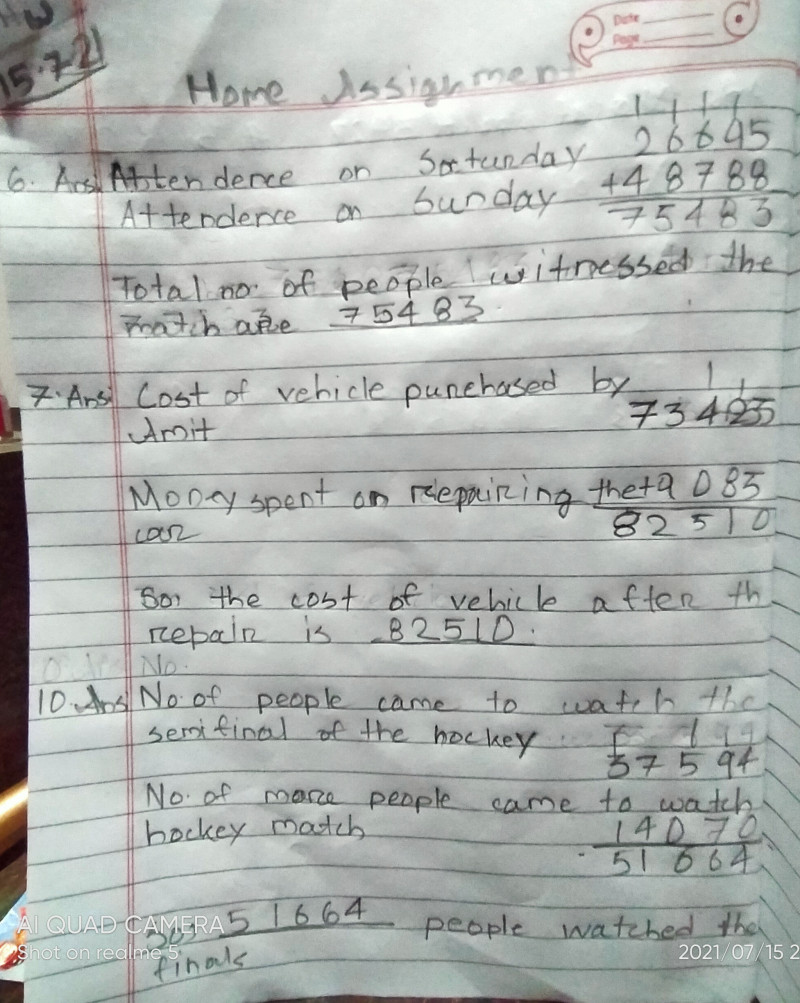 HW
15.7.21
Date
Page
Home Assignment
1 1 1 1
6. Ans Attendence on Satunday 26695
Attendence on Sunday +48788
75483
Total no. of people witnessed the
match are 75483.
7. Ans Cost of vehicle punchased by 1 1
Amit 73425
Money spent on repairing the +9085
car 82510
So, the cost of vehicle after th
repair is 82510.
No.
10. Ans No. of people came to watch the
semifinal of the hockey
37594
No. of more people came to watch
hockey match 14070
51664
So, 51664 people watched the
finals
AI QUAD CAMERA
Shot on realme 5
2021/07/15 2